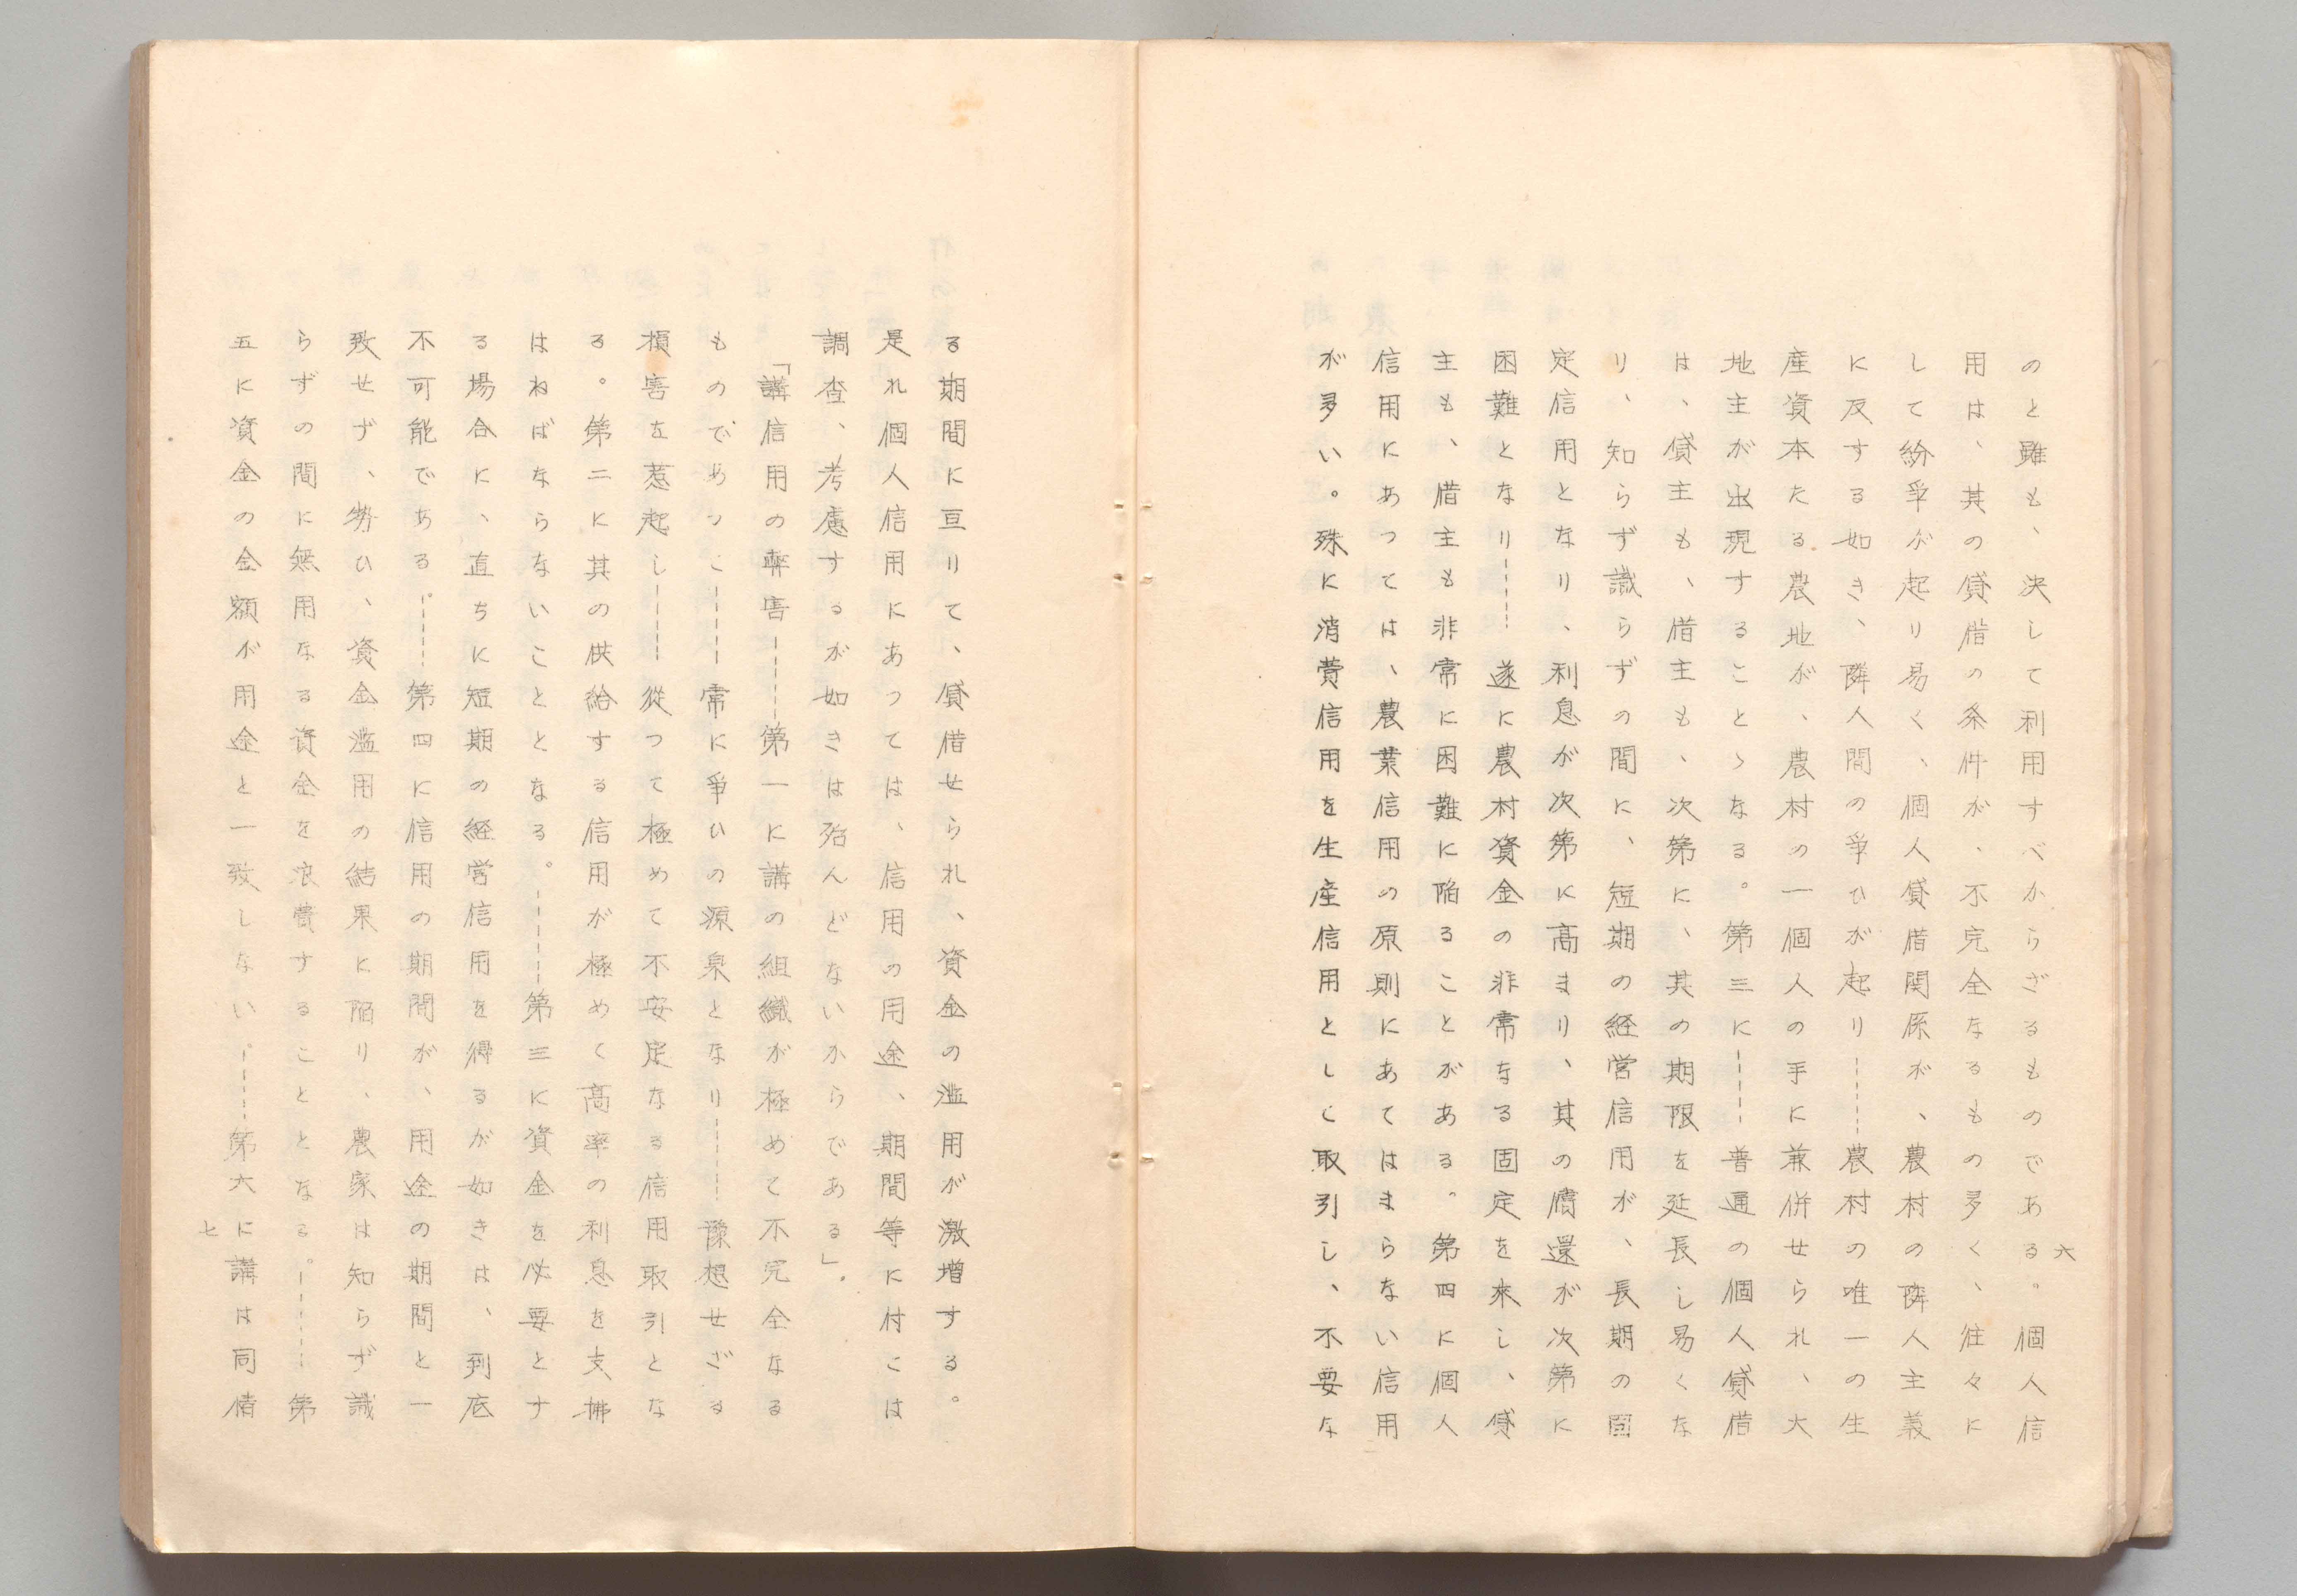 のと雖も、決して利用すべからざるものである。個人信
用は、其の貸借の条件が、不完全なるもの多く、往々に
して紛爭が起り易く、個人貸借関係が、農村の隣人主義
に反する如き、隣人間の爭ひが起り-----農村の唯一の生
産資本たる農地が、農村の一個人の手に兼併せられ、大
地主が出現することゝなる。第三に-----普通の個人貸借
は、貸主も、借主も、次第に、其の期限を延長し易くな
り、知らず識らずの間に、短期の経営信用が、長期の固
定信用となり、利息が次第に高まり、其の償還が次第に
困難となり-----遂に農村資金の非常なる固定を来し、貸
主も、借主も非常に困難に陥ることがある。第四に個人
信用にあつては、農業信用の原則にあてはまらない信用
が多い。殊に消費信用を生産信用として取引し、不要な
六
る期間に亘りて、貸借せられ、資金の濫用が激増する。
是れ個人信用にあつては、信用の用途、期間等に付こは
調査、考慮するが如きは殆んどないからである」。
「講信用の弊害-----第一に講の組織が極めて不完全なる
ものであつこ-----常に爭ひの源泉となり-----豫想せざる
損害を惹起し-----從つて極めて不安定なる信用取引とな
る。第二に其の供給する信用が極めく高率の利息を支拂
はねばならないことゝなる。-----第三に資金を必要とす
る場合に、直ちに短期の経営信用を得るが如きは、到底
不可能である。-----第四に信用の期間が、用途の期間と一
致せず、勢ひ、資金濫用の結果に陥り、農家は知らず識
らずの間に無用なる資金を浪費することとなる。-----第
五に資金の金額が用途と一致しない。-----第六に講は同情
七